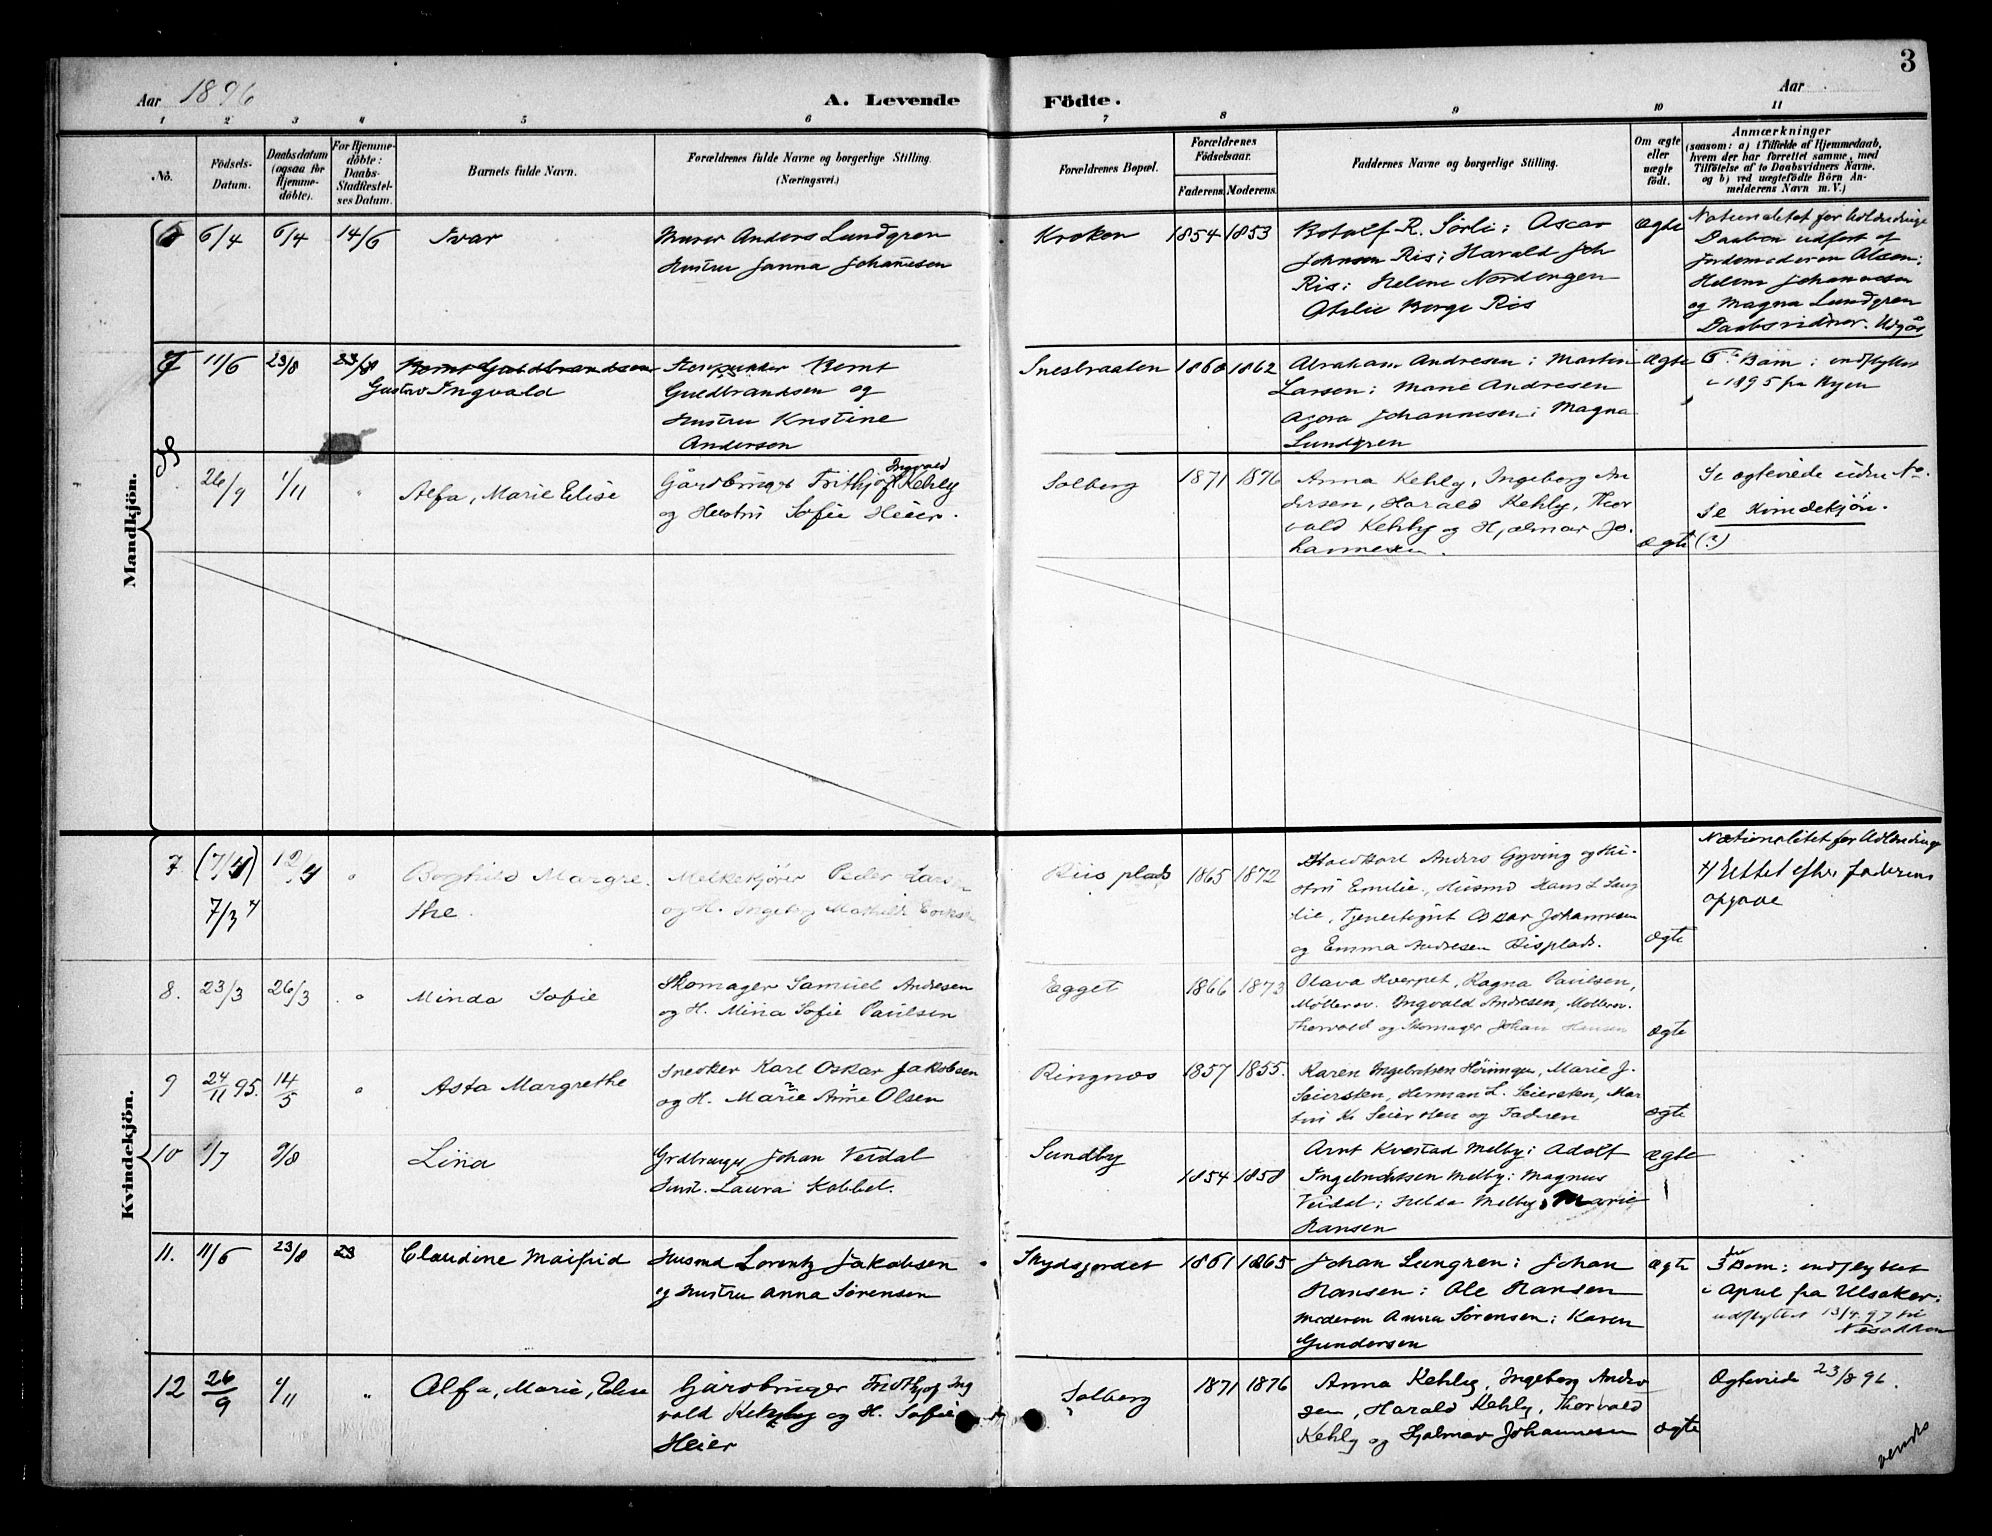 3
Aar 1896
A. Levende
Födte.
Aar
1 2 3 4 5 6 7 8 9 10 11
No.
Födsels-
Datum.
Daabsdatum
(ogsaa for
Hjemme-
döbte).
For Hjemme-
döbte:
Daabs-
Stadfæstel-
ses Datum.
Barnets fulde Navn.
Forældrenes fulde Navne og borgerlige Stilling.
(Næringsvei.)
Forældrenes Bopæl.
Forældrenes
Födselsaar.
Faderens. Moderens.
Faddernes Navne og borgerlige Stilling.
Om ægte
eller
uægte
födt.
Anmærkninger
(saasom: a) i Tilfælde af Hjemmedaab,
hvem der har forrettet samme, med
Tilföielse af to Daabsvidners Navne,
og b) ved uægtefödte Börn An-
melderens Navn m. V.)
Mandkjön.
6/4 6/4 14/6 Ivar
Murer Anders Lundgren
Hustru Janna Johannesen
Kroken 1854 1853
Botolf R. Sørli; Oscar
Johnsen Ris; Harald Joh
Ris; Helene Nordengen
Borge Ris
ægte
Nationalitet for Udlændinge
Daaben udført af
Jordemoderen Olsen;
Helene Johannesen
og Magna Lundgren
Daabsvidner.
7 11/6 23/8 23/8 Bernt Guldbrandsen
Gustav Ingvald
Bernt
Guldbrandsen og
Hustru Kristine
Andersen
Snesbraaten 1860 1862
Abraham Andresen; Martin
Larsen; Marie Andresen
Agora Johannesen; Magna
Lundgren
ægte
6te Barn; indflyttet
i 1895 fra Byen
26/9 1/11 " Alfa, Marie Elise
Gårdbruger Frithjof Ingvald Kehly
og Hustru Sofie Heier.
Solberg 1871 1876
Anna Kehly, Ingeborg An
dersen, Harald Kehly, Thor
vald Kehly og Hjalmar Jo.
hannesen.
ægte
Se ægteviede under No.
Se Kvindekjön.
(?)
Kvindekjön.
7 (7/4) 12/4 " Borghild Margre-
the.
7/3
Melkekjører Peder Larsen
og H. Ingeborg Mathilde
Riis plads 1865 1872
Anders Gyving og Hu-
stru Emilie, Husmd Hans L.
lie, Tjenestegut Oscar Johannesen
og Emma Andresen Risplads.
ægte
Nationalitet for Udlændinge
Rettet efter Faderens
opgave
8. 23/3 26/3 " Minda Sofie
Skomager Samuel Andresen
og H. Mina Sofie Paulsen
Egget 1866 1873
Olava Kverpet, Ragna Paulsen,
Møllerov. Ingvald Andresen, Møllerov.
Thorvald og Skomager Johan Hansen
ægte
9 24/11 95. 14/5 " Asta Margrethe
Snedker Karl Oskar Jakobsen
og H. Marie Anne Olsen
Ringnes 1857 1855.
Karen Ingebretsen, Marie J.
Seiersten, Herman L. Seiersten, Mar
K. Seiersten og Fadren
ægte
10 1/7 9/8 Lina
Grdbruger Johan Veidal
Hust. Laura Kobbel.
Sundby 1854 1858
Arnt Kvestad Melby; Adolf
Ingebrethsen Melby; Magnus
Veidal; Hilda Melby; Marie
Hansen
ægte
11. 11/6 23/8 23 Claudine Maifrid
Husmd Lorentz Jakobsen
og Hustru Anna Sørensen
Skydsjordet 1861 1865
Johan Lungren; Johan
Hansen; Ole Hansen
Moderen Anna Sørensen; Karen
Gundersen
ægte
3die Barn; indflyttet
i April fra Ulsaker;
udflyttet 13/4 97 til
Nesodden
12 26/9 1/11 " Alfa, Marie, Elise
Gårdbruger Fridthjof Ing
vald Kehly og H. Sofie
Heier
Solberg 1871 1876
Anna Kehly, Ingeborg Andre
sen, Harald Kehly, Thorvald
Kehly og Hjalmar Johannesen
ægte
Ægteviede 23/8 96.
vendes